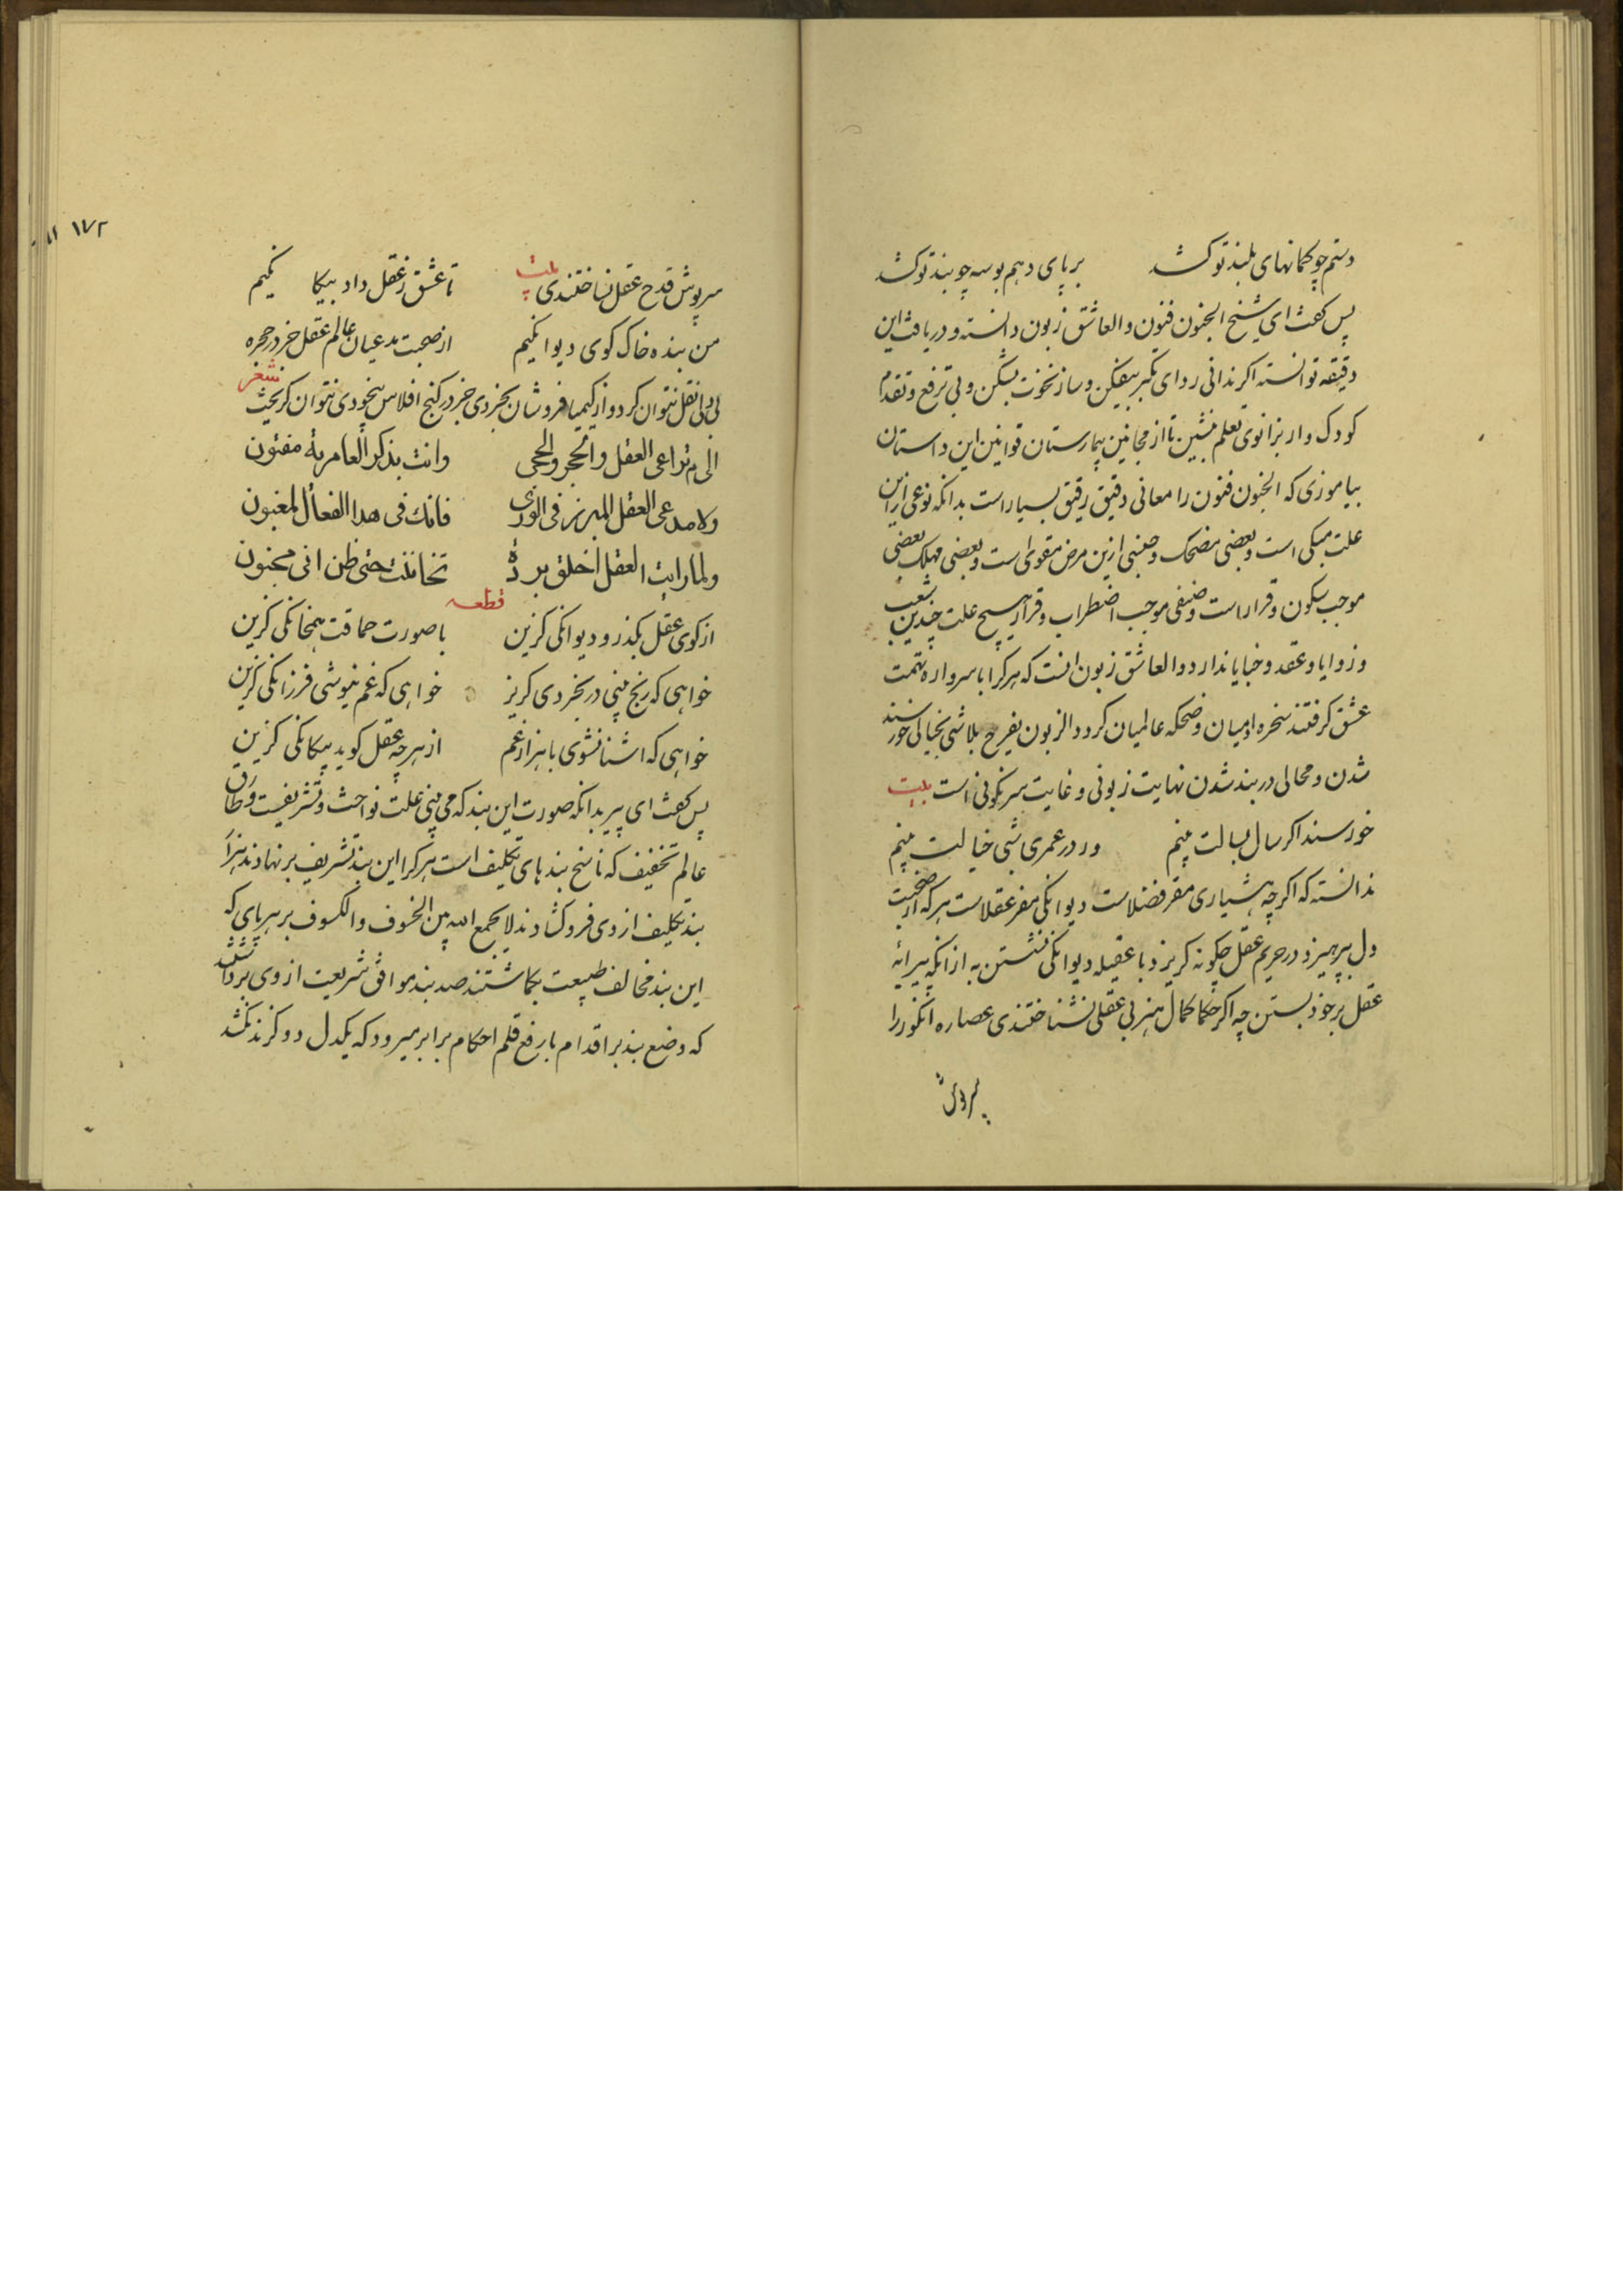 دستم چو کمانهای بلند تو کشد برپای دهم بوسه چو بند تو کشد
پس گفت ای شیخ الجنون فنون والعاشق زبون دانسته و دریافت این
دقیقه توانسته اکر ندانی ردای تکبر بیفکن و ساز نخوت بشکن و بی ترفع و تقدم
کودک وار بزانوی تعلم بنشین تا از مجانین بیمارستان قوانین این داستان
بیاموزی که الجنون فنون را معانی دقیق رقیق بسیار است بدانکه نوعی را ازین
علت مبکی است و بعضی مضحک و جنسی ازین مرض مقوی است و بعضی مهلک بعضی
موجب سکون و قرار است و صنفی موجب اضطراب و قرار هیچ علت چندین شعب
و زوایا و عقد و خبایا ندارد والعاشق زبون انست که هرکرا باسرواره تهمت
عشق کرفتند سخره ادمیان و ضحکه عالمیان کردد الزبون یفرح بلاشی بخیالی خورسند
شدن و محالی دربند شدن نهایت زبونی و غایت سرنکونی است بیت
خورسند اکر سال بسالت بینم ور در عمری شبی خیالت بینم
ندانسته که اکرچه هشیاری مقر فضلاست دیوانکی مفر عقلاست هرکه از صحبت
دل بپرهیزد در حریم عقل چکونه کریزد با عقیله دیوانکی نشستن به از انکه پیرایه
عقل برخود بستن چه اکر حکما کمال هنر بی عقلی نشناختندی عصاره انکور را
سرپوش
۱۷۲
سرپوش قدح عقل نساختندی بیت تا عشق ز عقل داد بیکا نکیم
من بنده خاک کوی دیوا نکیم از صحبت مدعیان عالم عقل خرد در حجره
لی ولی نقل نتوان کرد و از کیمیا فروشان بخردی خبر در کنج افلاس بیخودی نتوان کریخت شعر
الی م تراعی العقل والحجر والحجی وانت بذکر العامریة مفتون
ولا مدعی العقل المبرز فی الوری فانک فی هذا الفعال لمغبون
ولما رایت العقل اخلق برده تخاننت حتی ظن انی مجنون
قطعه
از کوی عقل بکذر و دیوانکی کزین با صورت حماقت همخانکی کزین
خواهی که رنج نبینی در بخردی کریز خواهی که غم ننوشی فرزانکی کزین
خواهی که اشنا نشوی با هزار غم از هرچه عقل کوید بیکانکی کزین
پس کفت ای پیر بدانکه صورت این بند که می بینی علت نواخت و تشریفست و طاق
عالم تخفیف که ناسخ بندهای تکلیف است هرکرا این بند تشریف برنهادند هزار
بند تکلیف از وی فروکشادند لا یجمع الله بین الخسوف والکسوف بر هر پای که
این بند مخالف طبیعت بکماشتند صد بند موافق شریعت از وی برداشتند
که وضع بند بر اقدام با رفع قلم احکام برابر میرود که یکدل دو کزند نکشد